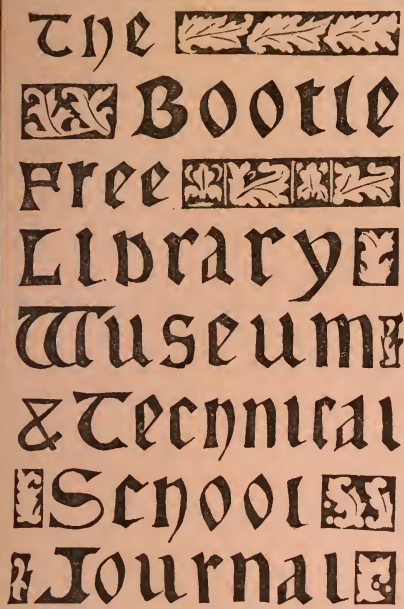 The
Bootle
Free
Library
Museum
& Technical
School
Journal